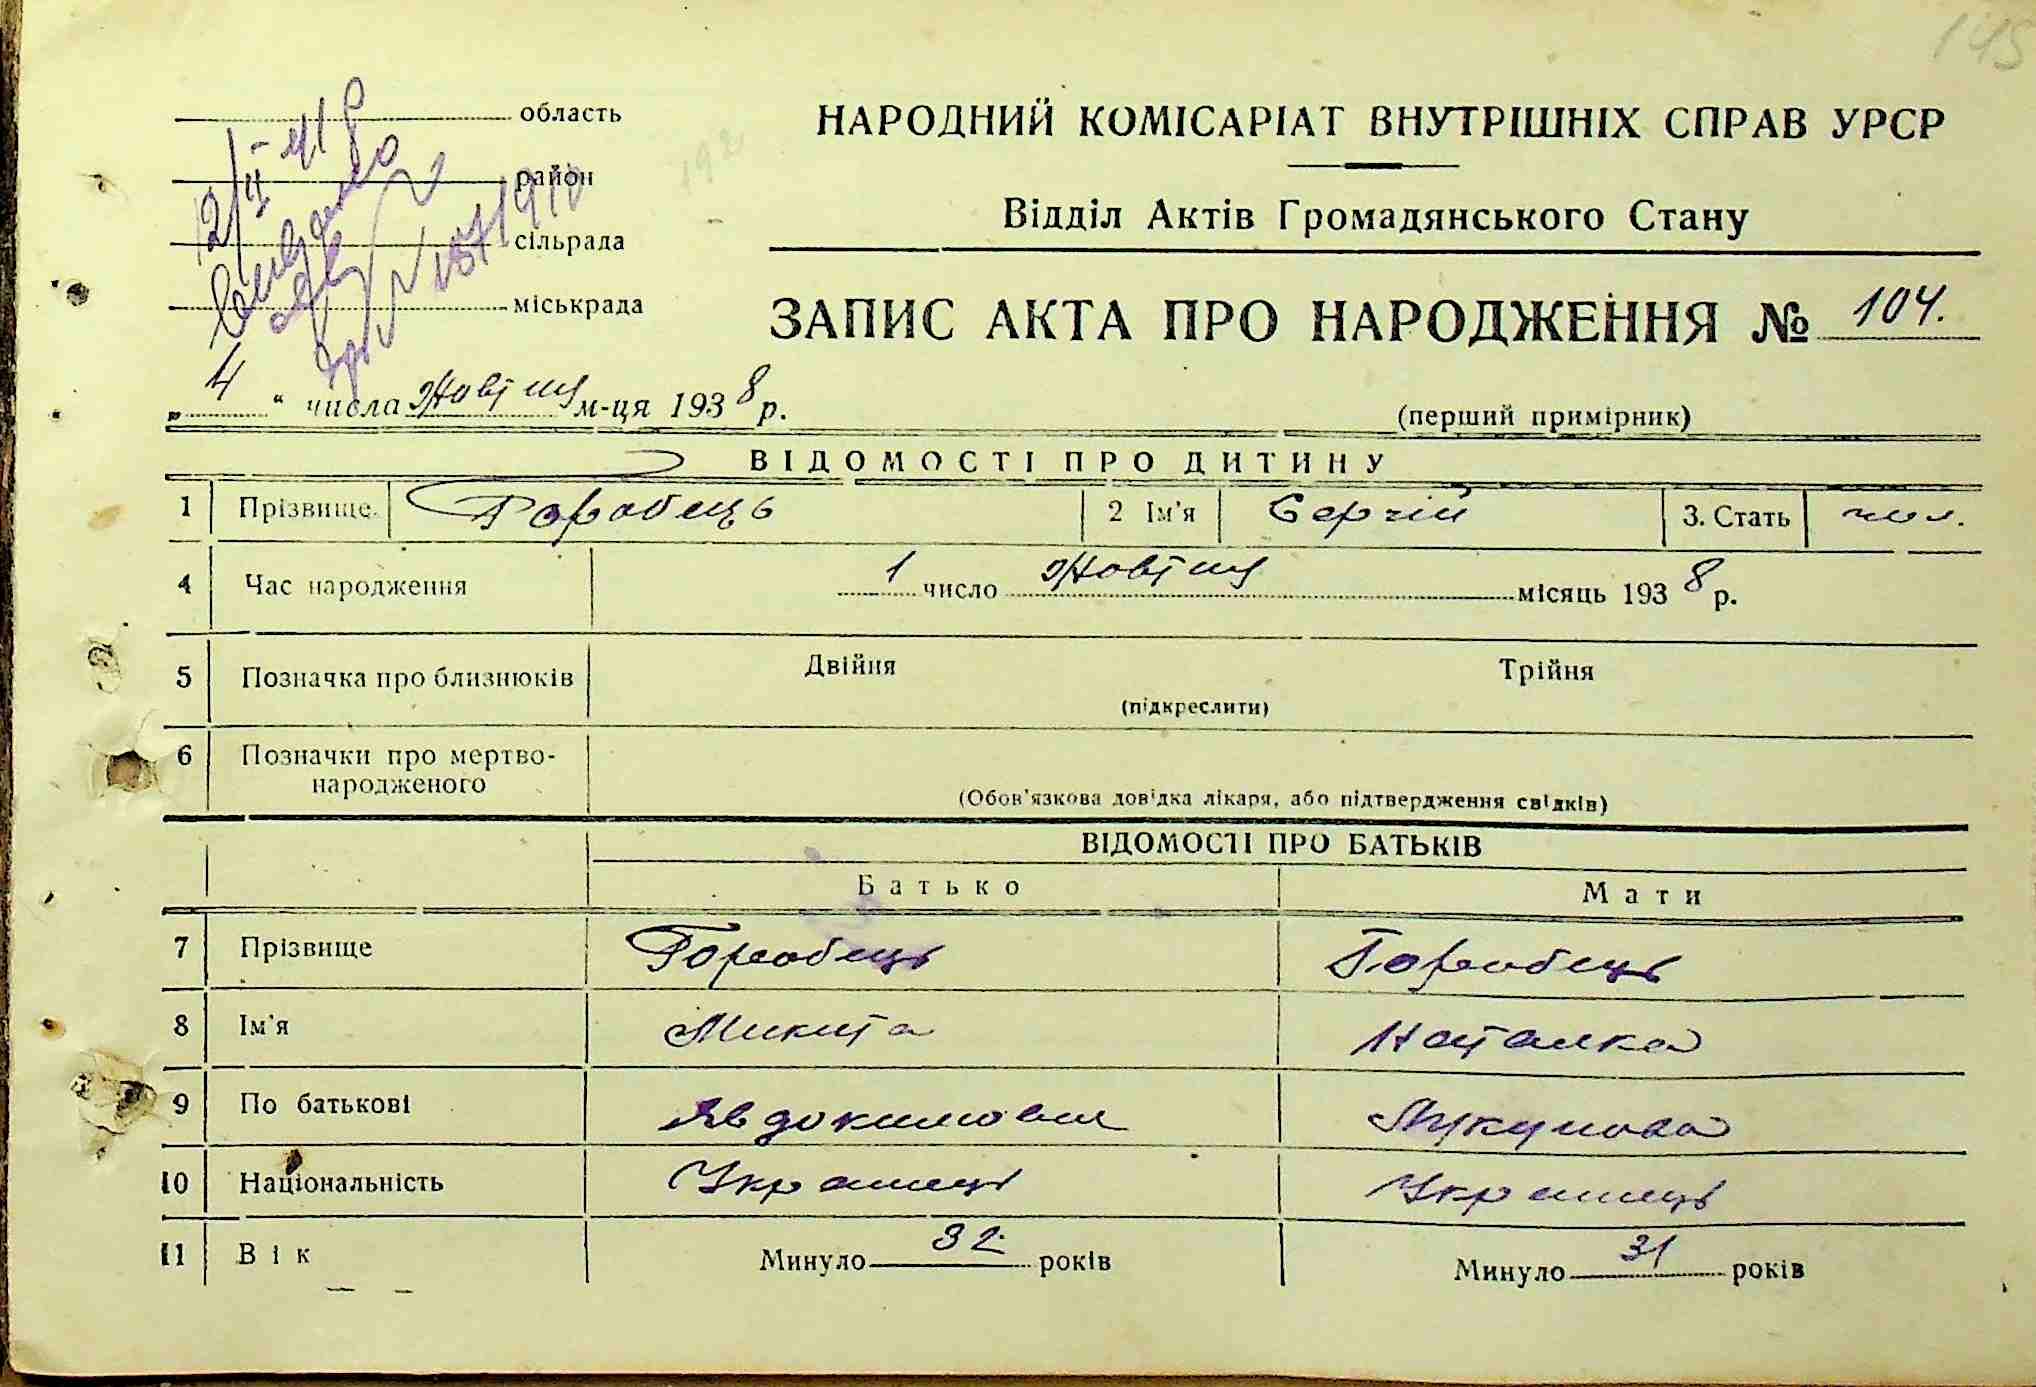 145
область
район
сільрада
міськрада
12/II-41 р
НАРОДНИЙ КОМІСАРІАТ ВНУТРІШНІХ СПРАВ УРСР
Відділ Актів Громадянського Стану
ЗАПИС АКТА ПРО НАРОДЖЕННЯ № 104.
„ 4 “ числа Жовтня м-ця 193 8 р.
(перший примірник)
ВІДОМОСТІ ПРО ДИТИНУ
1 Прізвище Горобець 2 Ім'я Сергій 3. Стать чол.
4 Час народження 1 число Жовтня місяць 193 8 р.
5 Позначка про близнюків Двійня Трійня
(підкреслити)
6 Позначки про мертво-
народженого
(Обов'язкова довідка лікаря, або підтвердження свідків)
ВІДОМОСТІ ПРО БАТЬКІВ
Батько Мати
7 Прізвище Горобець Горобець
8 Ім'я Микита Наталка
9 По батькові Явдокимович
10 Національність Українець Українець
11 Вік Минуло 32 років Минуло 31 років